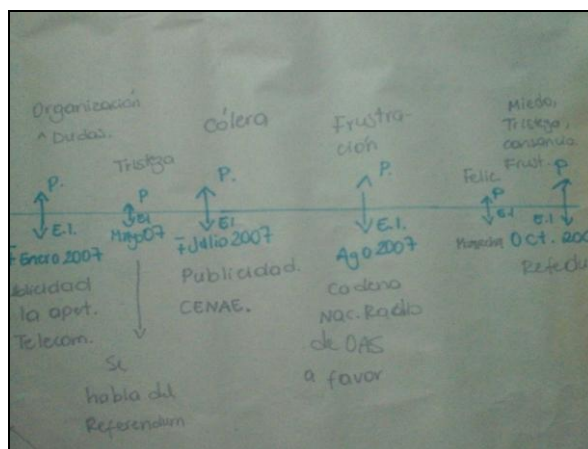 Organización
^ Dudas.
P.
E.I.
∓ Enero 2007
blicidad
la apet.
Telecom.
Tristeza
P
EI
Mayo07
Se
habla del
Referendum
Cólera
P.
E.I
∓ Julio 2007
Publicidad.
CENAE.
Frustra-
ción
P.
E.I.
Ago 2007
Cadena
Nac. Radio
de OAS
a favor
Felic.
P
E.I
Miedo,
Tristeza,
cansancio
Frust.
P
E.I
Oct. 200
Referdu